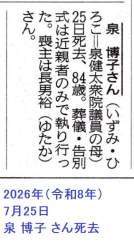 泉 博子さん(いずみ・ひ
ろこ=泉健太衆院議員の母)
25日死去、84歳。葬儀・告別
式は近親者のみで執り行っ
た。喪主は長男裕(ゆたか)
さん。
2026年(令和8年)
7月25日
泉 博子さん死去